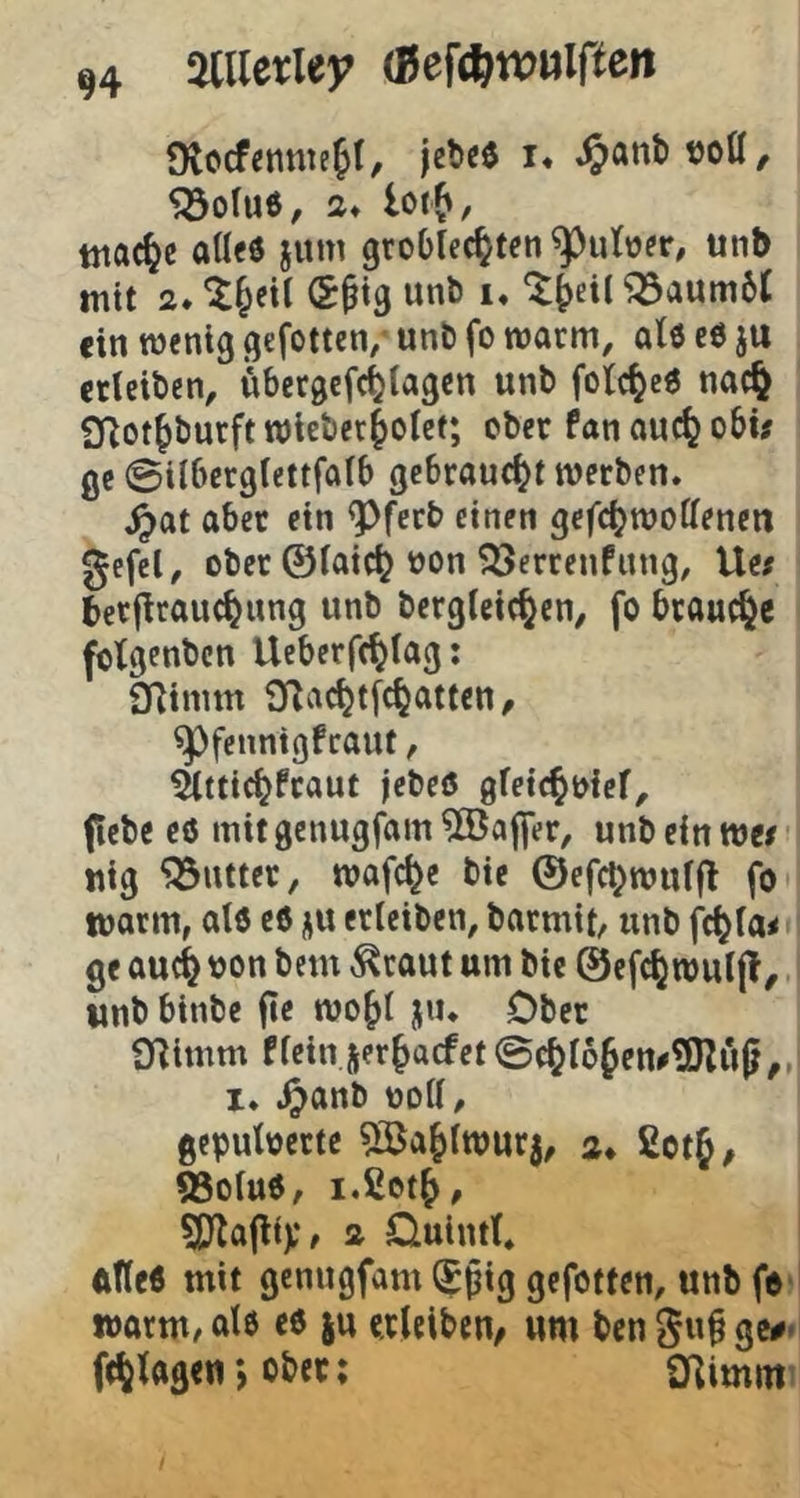 94 Allerley Geschwulsten
Rockenmehl, jedes 1. Hand voll,
Bolus, 2. loth,
mache alles zum groblechten Pulver, und
mit 2. Theil Eßig und 1. Theil Baumöl
ein wenig gesotten, und so warm, als es zu
erleiden, übergeschlagen und solches nach
Nothdurft wiederholet; oder kan auch obi-
ge Silberglettsalb gebraucht werden.
Hat aber ein Pferd einen geschwollenen
Fesel, oder Glaich von Verrenkung, Ue-
berstrauchung und dergleichen, so brauche
folgenden Ueberschlag:
Nimm Nachtschatten,
Pfennigkraut,
Attichkraut jedes gleichviel,
siede es mit genugsam Wasser, und ein we-
nig Butter, wasche die Geschwulst so
warm, als es zu erleiden, darmit, und schla-
ge auch von dem Kraut um die Geschwulst,
und binde sie wohl zu. Oder
Nimm klein zerhacket Schlöhen-Müß,
1. Hand voll,
gepulverte Wahlwurz, 2. Loth,
Bolus, 1. Loth,
Mastix, 2 Quintl.
alles mit genugsam Eßig gesotten, und so
warm, als es zu erleiden, um den Fuß ge-
schlagen; oder: Nimm